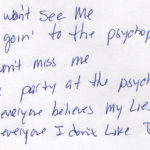 won't see me
goin' to the psychop
won't miss me
party at the psych
everyone believes my lies
everyone I don't like